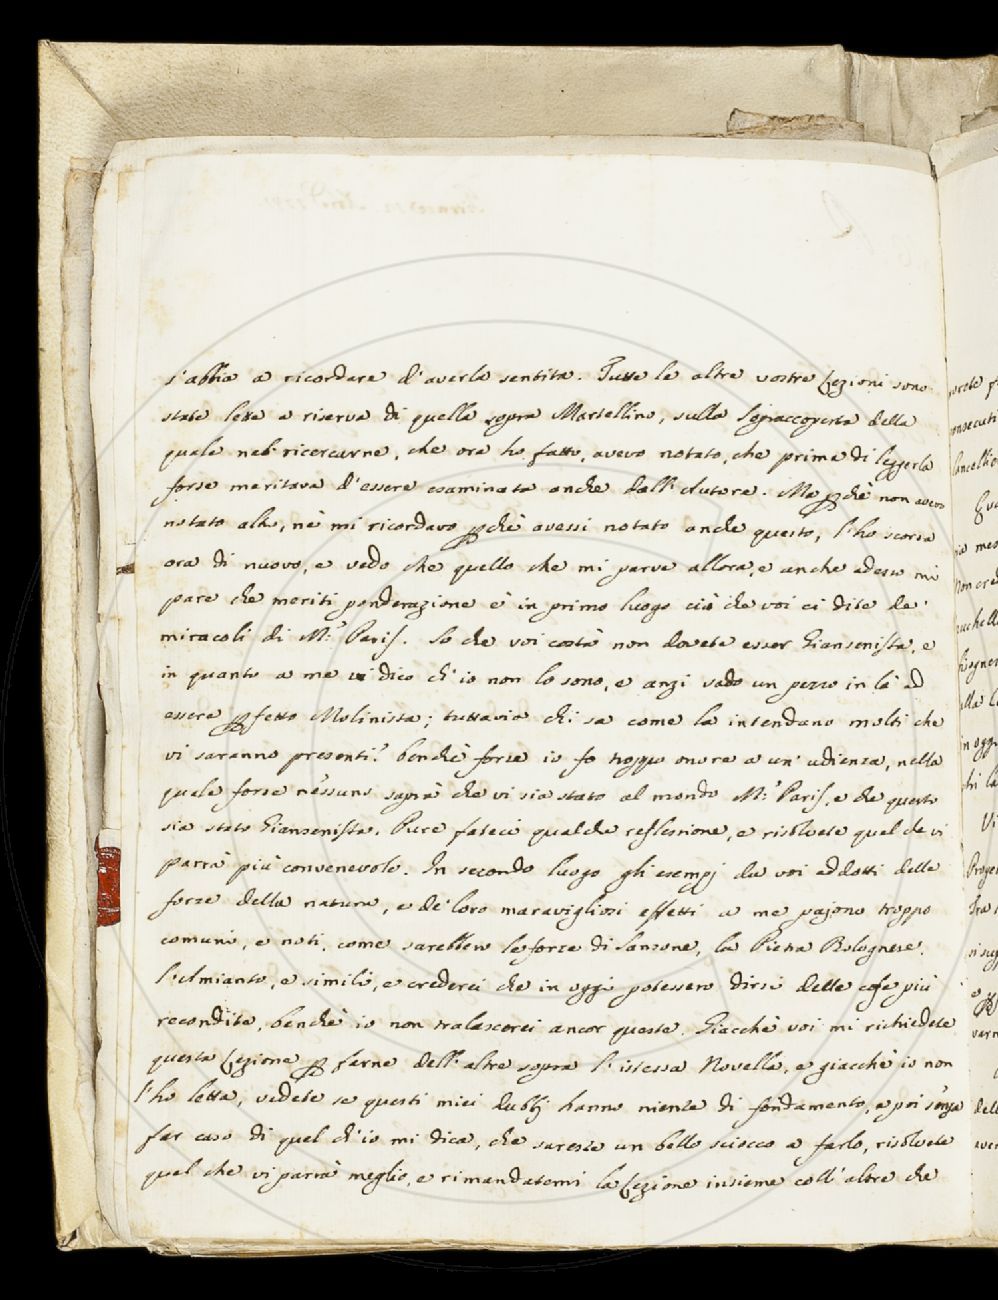 s'abbia a ricordare d'averla sentita. Tutte le altre vostre Lezioni sono
state lette a riserva di quella sopra Martellino, sulla sopraccoperta della
quale nel ricercarne, che ora ho fatto, avevo notato, che prima di leggerla
forse meritava d'essere esaminata anche dall'Autore. Ma pchè non avevo
notato altro, nè mi ricordavo pchè avessi notato anche questo, l'ho scorsa
ora di nuovo, e vedo che quello che mi parve allora, e anche adesso mi
pare che meriti ponderazione è in primo luogo ciò che voi ci dite de'
miracoli di M.r Paris. So che voi costà non dovete esser Giansenista, e
in quanto a me vi dico ch'io non lo sono, e anzi vado un pezzo in là ad
essere pfetto Molinista; tuttavia chi sa come la intendano molti che
vi saranno presenti? benchè forse io fo troppo onore a un'udienza, nella
quale forse nessuno saprà che vi sia stato al mondo M.r Paris, e che questo
sia stato Giansenista. Pure fateci qualche reflessione, e risolvete quel che vi
parrà più convenevole. In secondo luogo gli esempj da voi addotti delle
forze della natura, e de' loro maravigliosi effetti a me pajono troppo
comuni, e noti, come sarebbero le forze di Sansone, la Pietra Bolognese,
l'Amianto, e simili, e crederei che in oggi potessero dirsi delle cose più
recondite, benchè io non tralascerei ancor queste. Giacchè voi mi richiedete
questa Lezione p farne dell'altre sopra l'istessa Novella, e giacchè io non
l'ho letta, vedete se questi miei dubbj hanno niente di fondamento, e poi senza
far caso di quel ch'io mi dica, che sareste un bello sciocco a farlo, risolvete
quel che vi parrà meglio, e rimandatemi la Lezione insieme coll'altre che